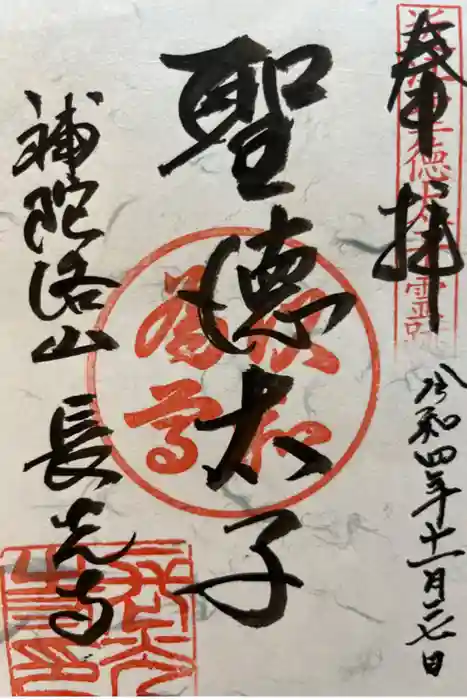 奉拝
聖徳太子霊跡
令和四年十一月二七日
聖徳太子
和為貴
補陀洛山 長光寺